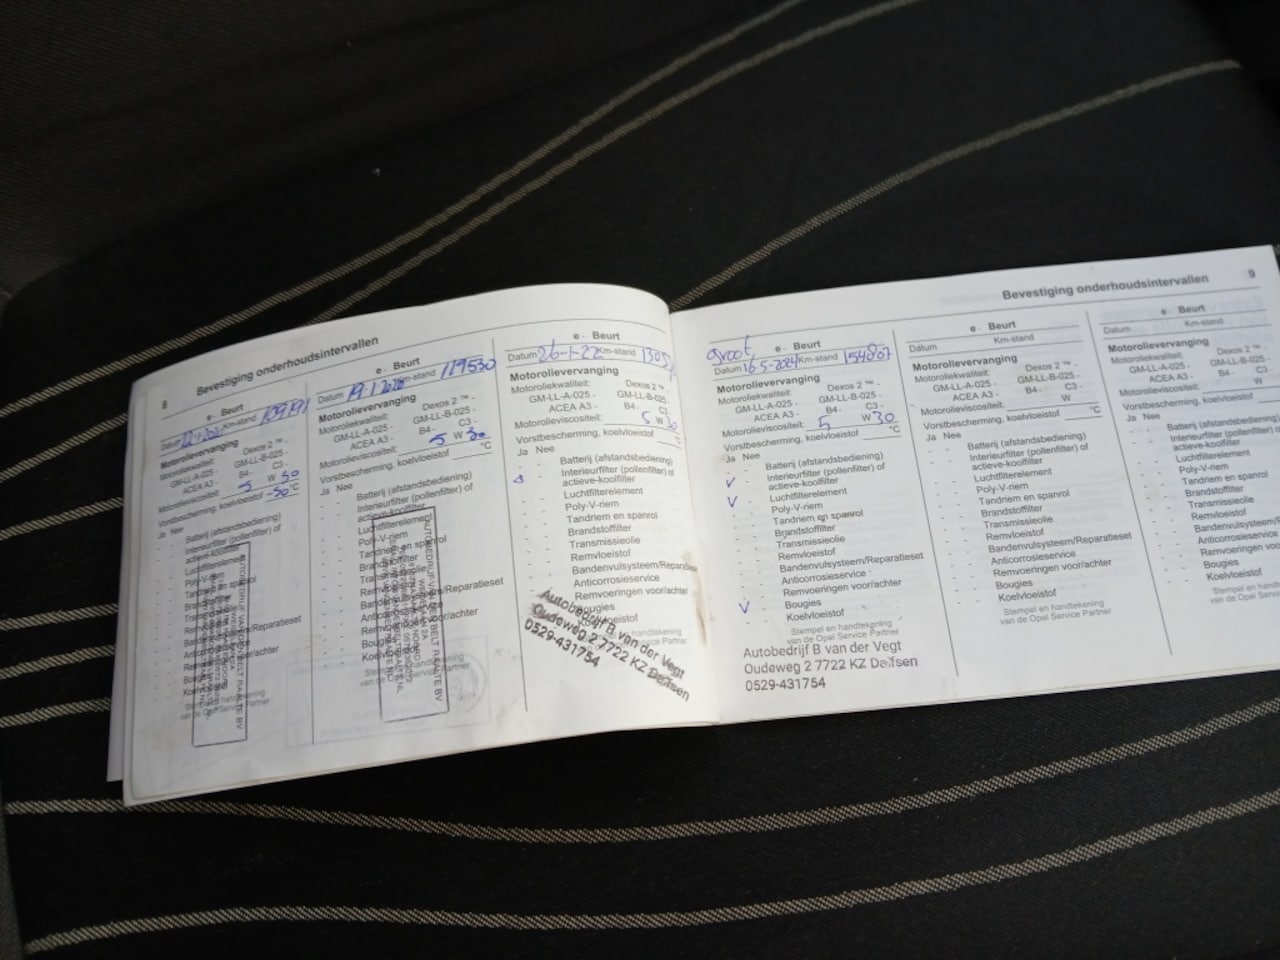 8
Bevestiging onderhoudsintervallen
e - Beurt
Datum Km-stand 109191
Motorolievervanging
Motoroliekwaliteit: Dexos 2 ™ -
GM-LL-A-025 - GM-LL-B-025 -
ACEA A3 - B4 - C3 -
Motorolieviscositeit: 5 W 30
Vorstbescherming, koelvloeistof -30 °C
Ja Nee
Batterij (afstandsbediening)
Interieurfilter (pollenfilter) of
actieve-koolfilter
Luchtfilterelement
Poly-V-riem
Stempel en handtekening
van de Opel Service Partner
e - Beurt
Datum 19-1- Km-stand 119530
Motorolievervanging
Motoroliekwaliteit: Dexos 2 ™ -
GM-LL-A-025 - GM-LL-B-025 -
ACEA A3 - B4 - C3 -
Motorolieviscositeit: 5 W 30
Vorstbescherming, koelvloeistof °C
Ja Nee
Batterij (afstandsbediening)
Interieurfilter (pollenfilter) of
actieve-koolfilter
Luchtfilterelement
Poly-V-riem
Tandriem en spanrol
e - Beurt
Datum 26-1-22 Km-stand
Motorolievervanging
Motoroliekwaliteit: Dexos 2 ™ -
GM-LL-A-025 - GM-LL-B-025 -
ACEA A3 - B4 - C3 -
Motorolieviscositeit: 5 W 30
Vorstbescherming, koelvloeistof °C
Ja Nee
Batterij (afstandsbediening)
Interieurfilter (pollenfilter) of
actieve-koolfilter
Luchtfilterelement
Poly-V-riem
Tandriem en spanrol
Brandstoffilter
Transmissieolie
Remvloeistof
Bandenvulsysteem/Reparatieset
Anticorrosieservice
Remvoeringen voor/achter
Bougies
Autobedrijf B van der Vegt
Oudeweg 2 7722 KZ Dalfsen
0529-431754
9
Bevestiging onderhoudsintervallen
groot e - Beurt
Datum 16-5-2024 Km-stand 154807
Motorolievervanging
Motoroliekwaliteit: Dexos 2 ™ -
GM-LL-A-025 - GM-LL-B-025 -
ACEA A3 - B4 - C3 -
Motorolieviscositeit: 5 W 30
Vorstbescherming, koelvloeistof °C
Ja Nee
Batterij (afstandsbediening)
V Interieurfilter (pollenfilter) of
actieve-koolfilter
V Luchtfilterelement
Poly-V-riem
Tandriem en spanrol
Brandstoffilter
Transmissieolie
Remvloeistof
Bandenvulsysteem/Reparatieset
Anticorrosieservice
Remvoeringen voor/achter
V Bougies
Koelvloeistof
Stempel en handtekening
van de Opel Service Partner
Autobedrijf B van der Vegt
Oudeweg 2 7722 KZ Dalfsen
0529-431754
e - Beurt
Datum Km-stand
Motorolievervanging
Motoroliekwaliteit: Dexos 2 ™ -
GM-LL-A-025 - GM-LL-B-025 -
ACEA A3 - B4 - C3 -
Motorolieviscositeit: W
Vorstbescherming, koelvloeistof °C
Ja Nee
Batterij (afstandsbediening)
Interieurfilter (pollenfilter) of
actieve-koolfilter
Luchtfilterelement
Poly-V-riem
Tandriem en spanrol
Brandstoffilter
Transmissieolie
Remvloeistof
Bandenvulsysteem/Reparatieset
Anticorrosieservice
Remvoeringen voor/achter
Bougies
Koelvloeistof
Stempel en handtekening
van de Opel Service Partner
e - Beurt
Datum Km-stand
Motorolievervanging
Motoroliekwaliteit: Dexos 2 ™ -
GM-LL-A-025 - GM-LL-B-025 -
ACEA A3 - B4 - C3 -
Motorolieviscositeit: W
Vorstbescherming, koelvloeistof
Ja Nee
Batterij (afstandsbediening)
Interieurfilter (pollenfilter) of
actieve-koolfilter
Luchtfilterelement
Poly-V-riem
Tandriem en spanrol
Brandstoffilter
Transmissieolie
Remvloeistof
Bandenvulsysteem
Anticorrosieservice
Remvoeringen
Bougies
Koelvloeistof
Stempel en handtekening
van de Opel Service Partner